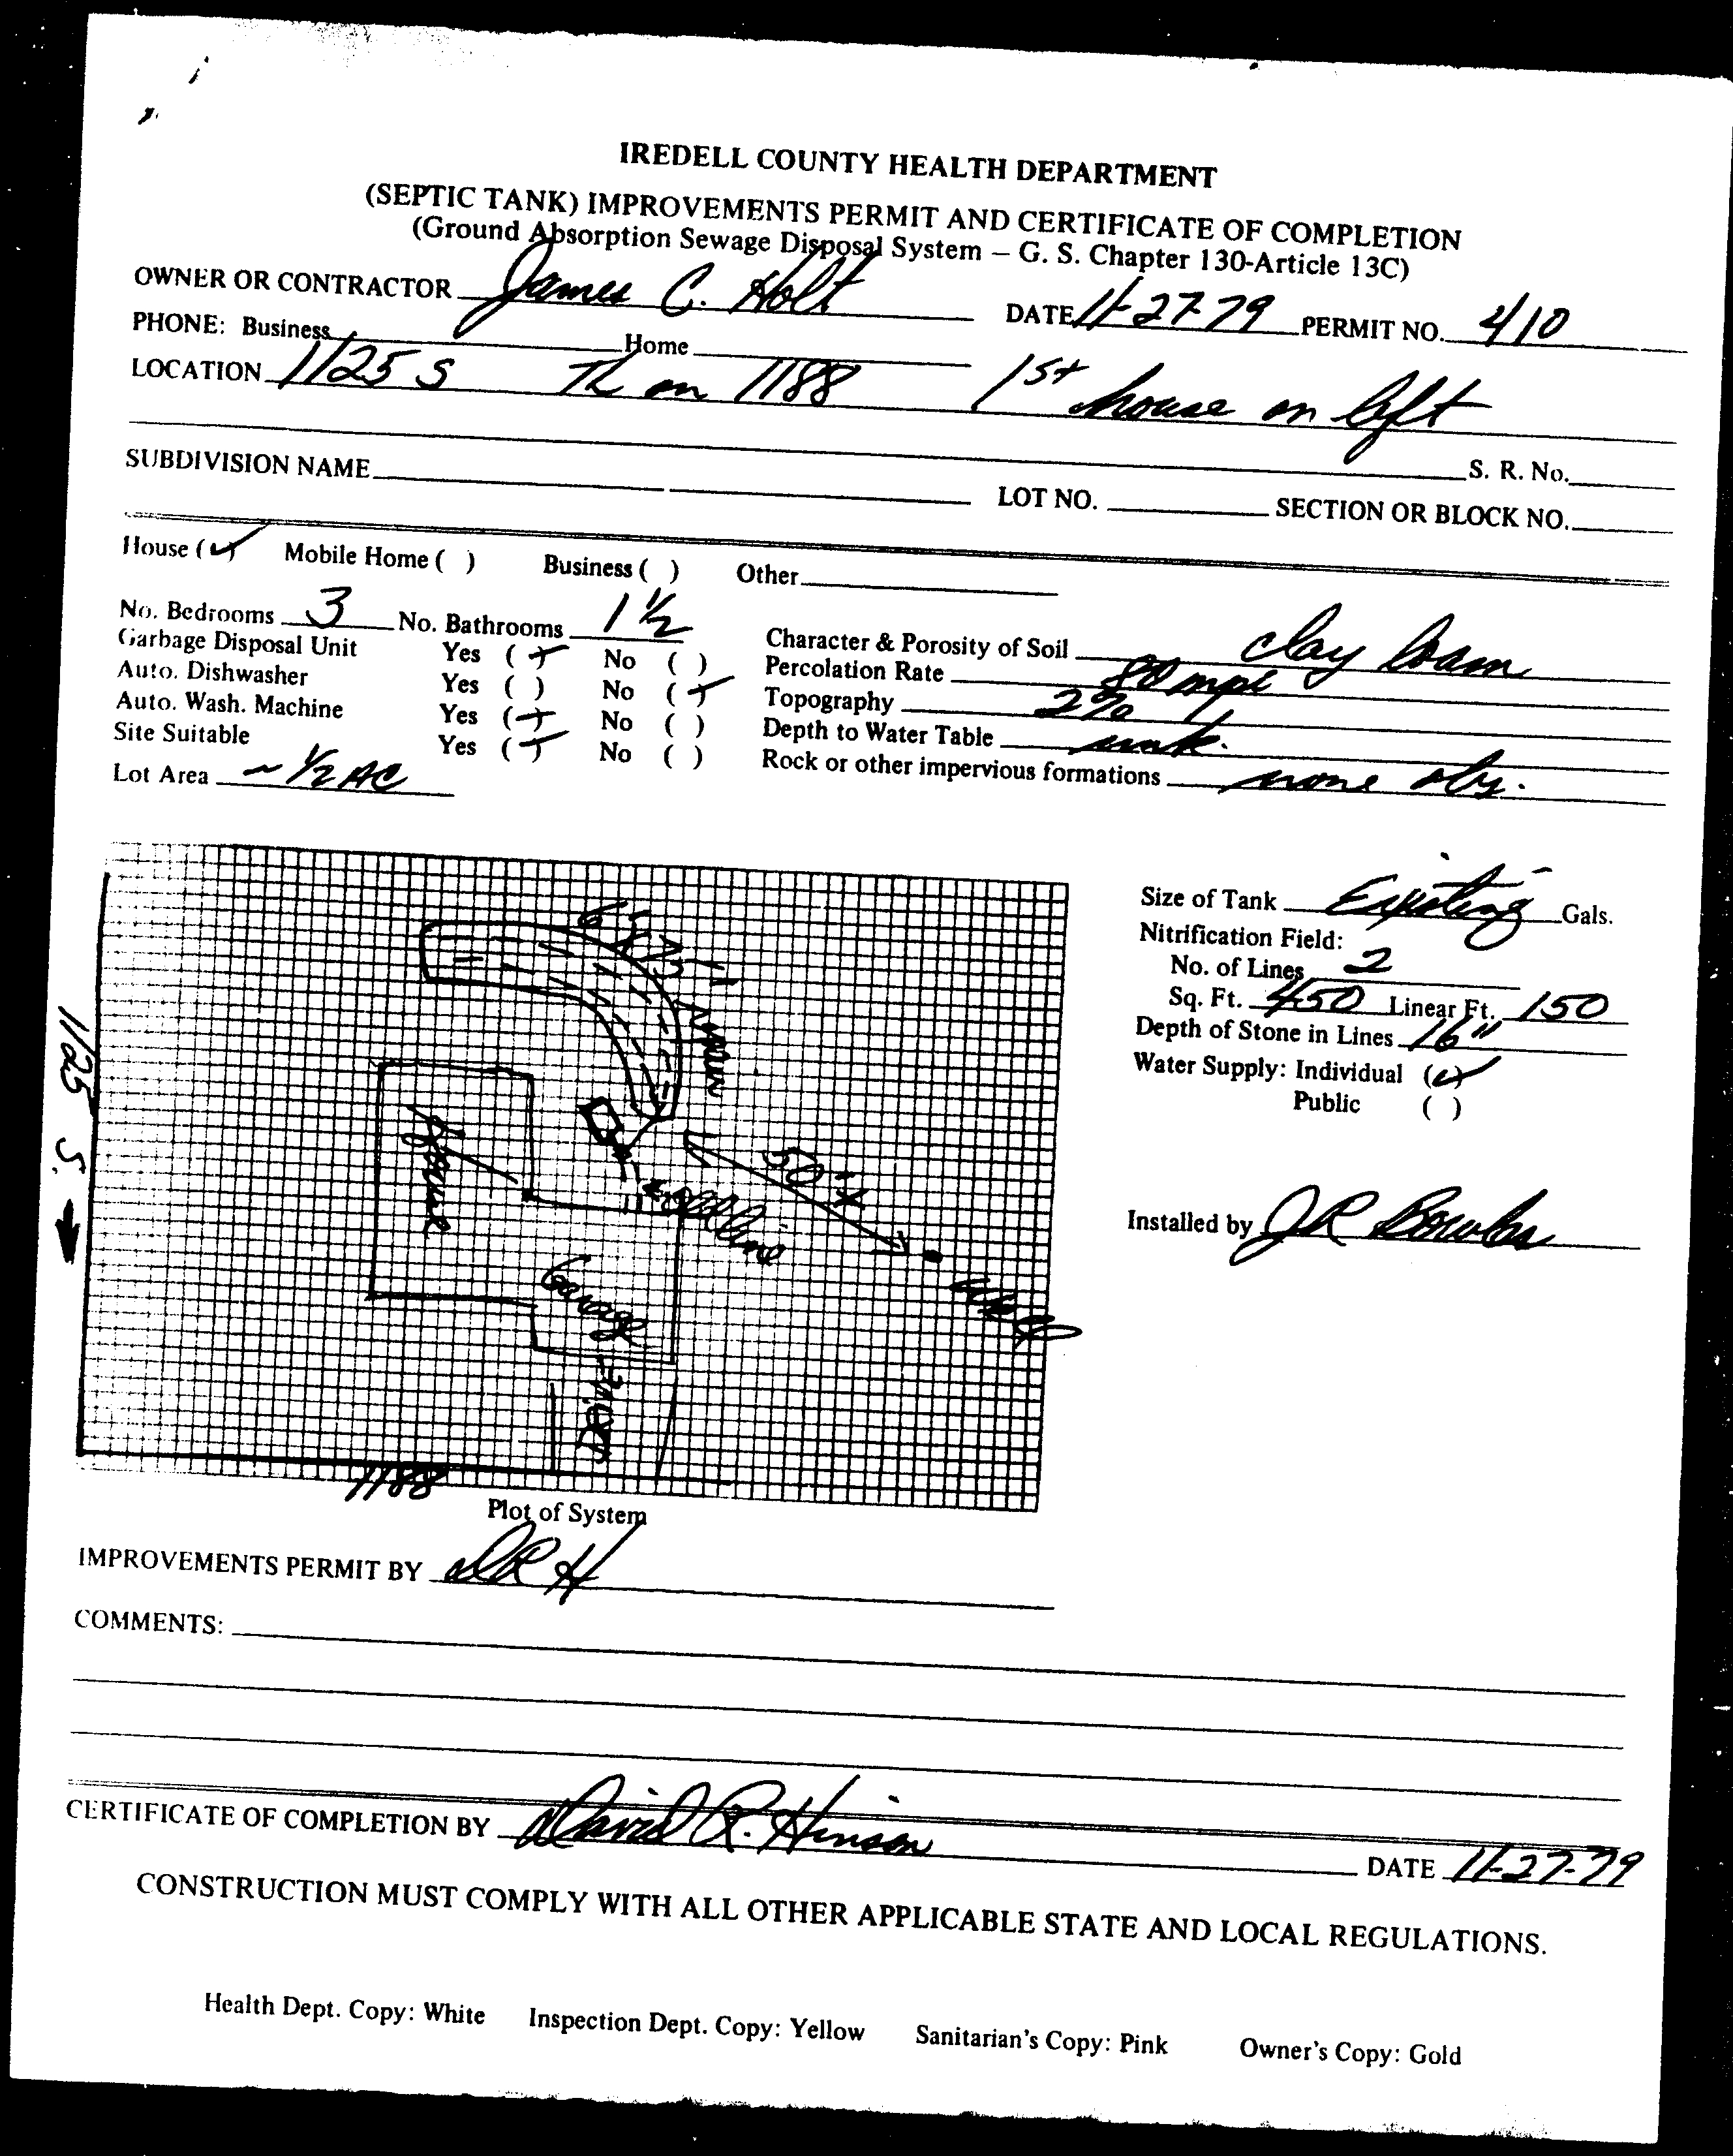 IREDELL COUNTY HEALTH DEPARTMENT
(SEPTIC TANK) IMPROVEMENTS PERMIT AND CERTIFICATE OF COMPLETION
(Ground Absorption Sewage Disposal System – G. S. Chapter 130-Article 13C)
OWNER OR CONTRACTOR James C. Holt DATE 11-27-79 PERMIT NO. 410
PHONE: Business Home
LOCATION 1125 S TL on 1188 1st house on left
S. R. No.
SUBDIVISION NAME LOT NO. SECTION OR BLOCK NO.
House (✓) Mobile Home ( ) Business ( ) Other
No. Bedrooms 3 No. Bathrooms 1 ½
Garbage Disposal Unit Yes (✓) No ( )
Auto. Dishwasher Yes ( ) No (✓)
Auto. Wash. Machine Yes (✓) No ( )
Site Suitable Yes (✓) No ( )
Lot Area ~ 1/2 AC
Character & Porosity of Soil clay loam
Percolation Rate 80 mpi
Topography 2%
Depth to Water Table unk.
Rock or other impervious formations none obs.
Size of Tank Existing Gals.
Nitrification Field:
No. of Lines 2
Sq. Ft. 450 Linear Ft. 150
Depth of Stone in Lines 16"
Water Supply: Individual (✓)
Public ( )
Installed by JR
1125 S.
6' X 75'
House
Old line
50'
Garage
Drive
Well
1188
Plot of System
IMPROVEMENTS PERMIT BY DRH
COMMENTS:
CERTIFICATE OF COMPLETION BY David R. Hinson
DATE 11-27-79
CONSTRUCTION MUST COMPLY WITH ALL OTHER APPLICABLE STATE AND LOCAL REGULATIONS.
Health Dept. Copy: White Inspection Dept. Copy: Yellow Sanitarian's Copy: Pink Owner's Copy: Gold